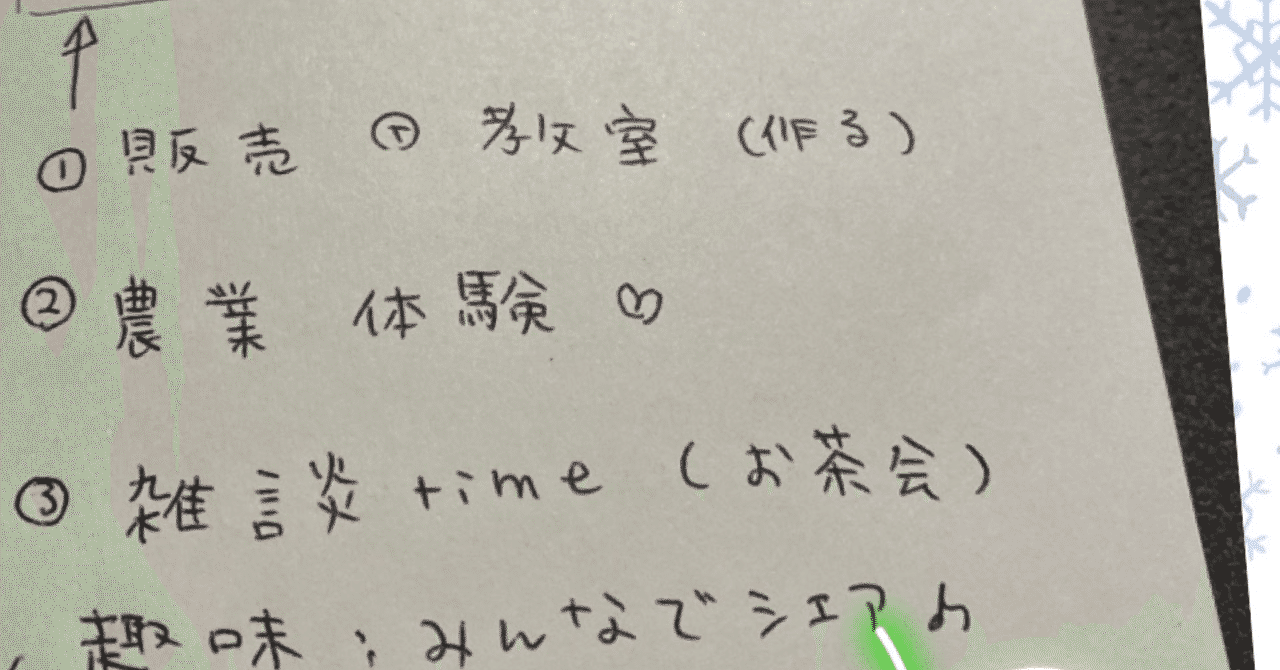 ① 販売 教室 (作る)
② 農業 体験 ♡
③ 雑談 time (お茶会)
趣味;みんなでシェア